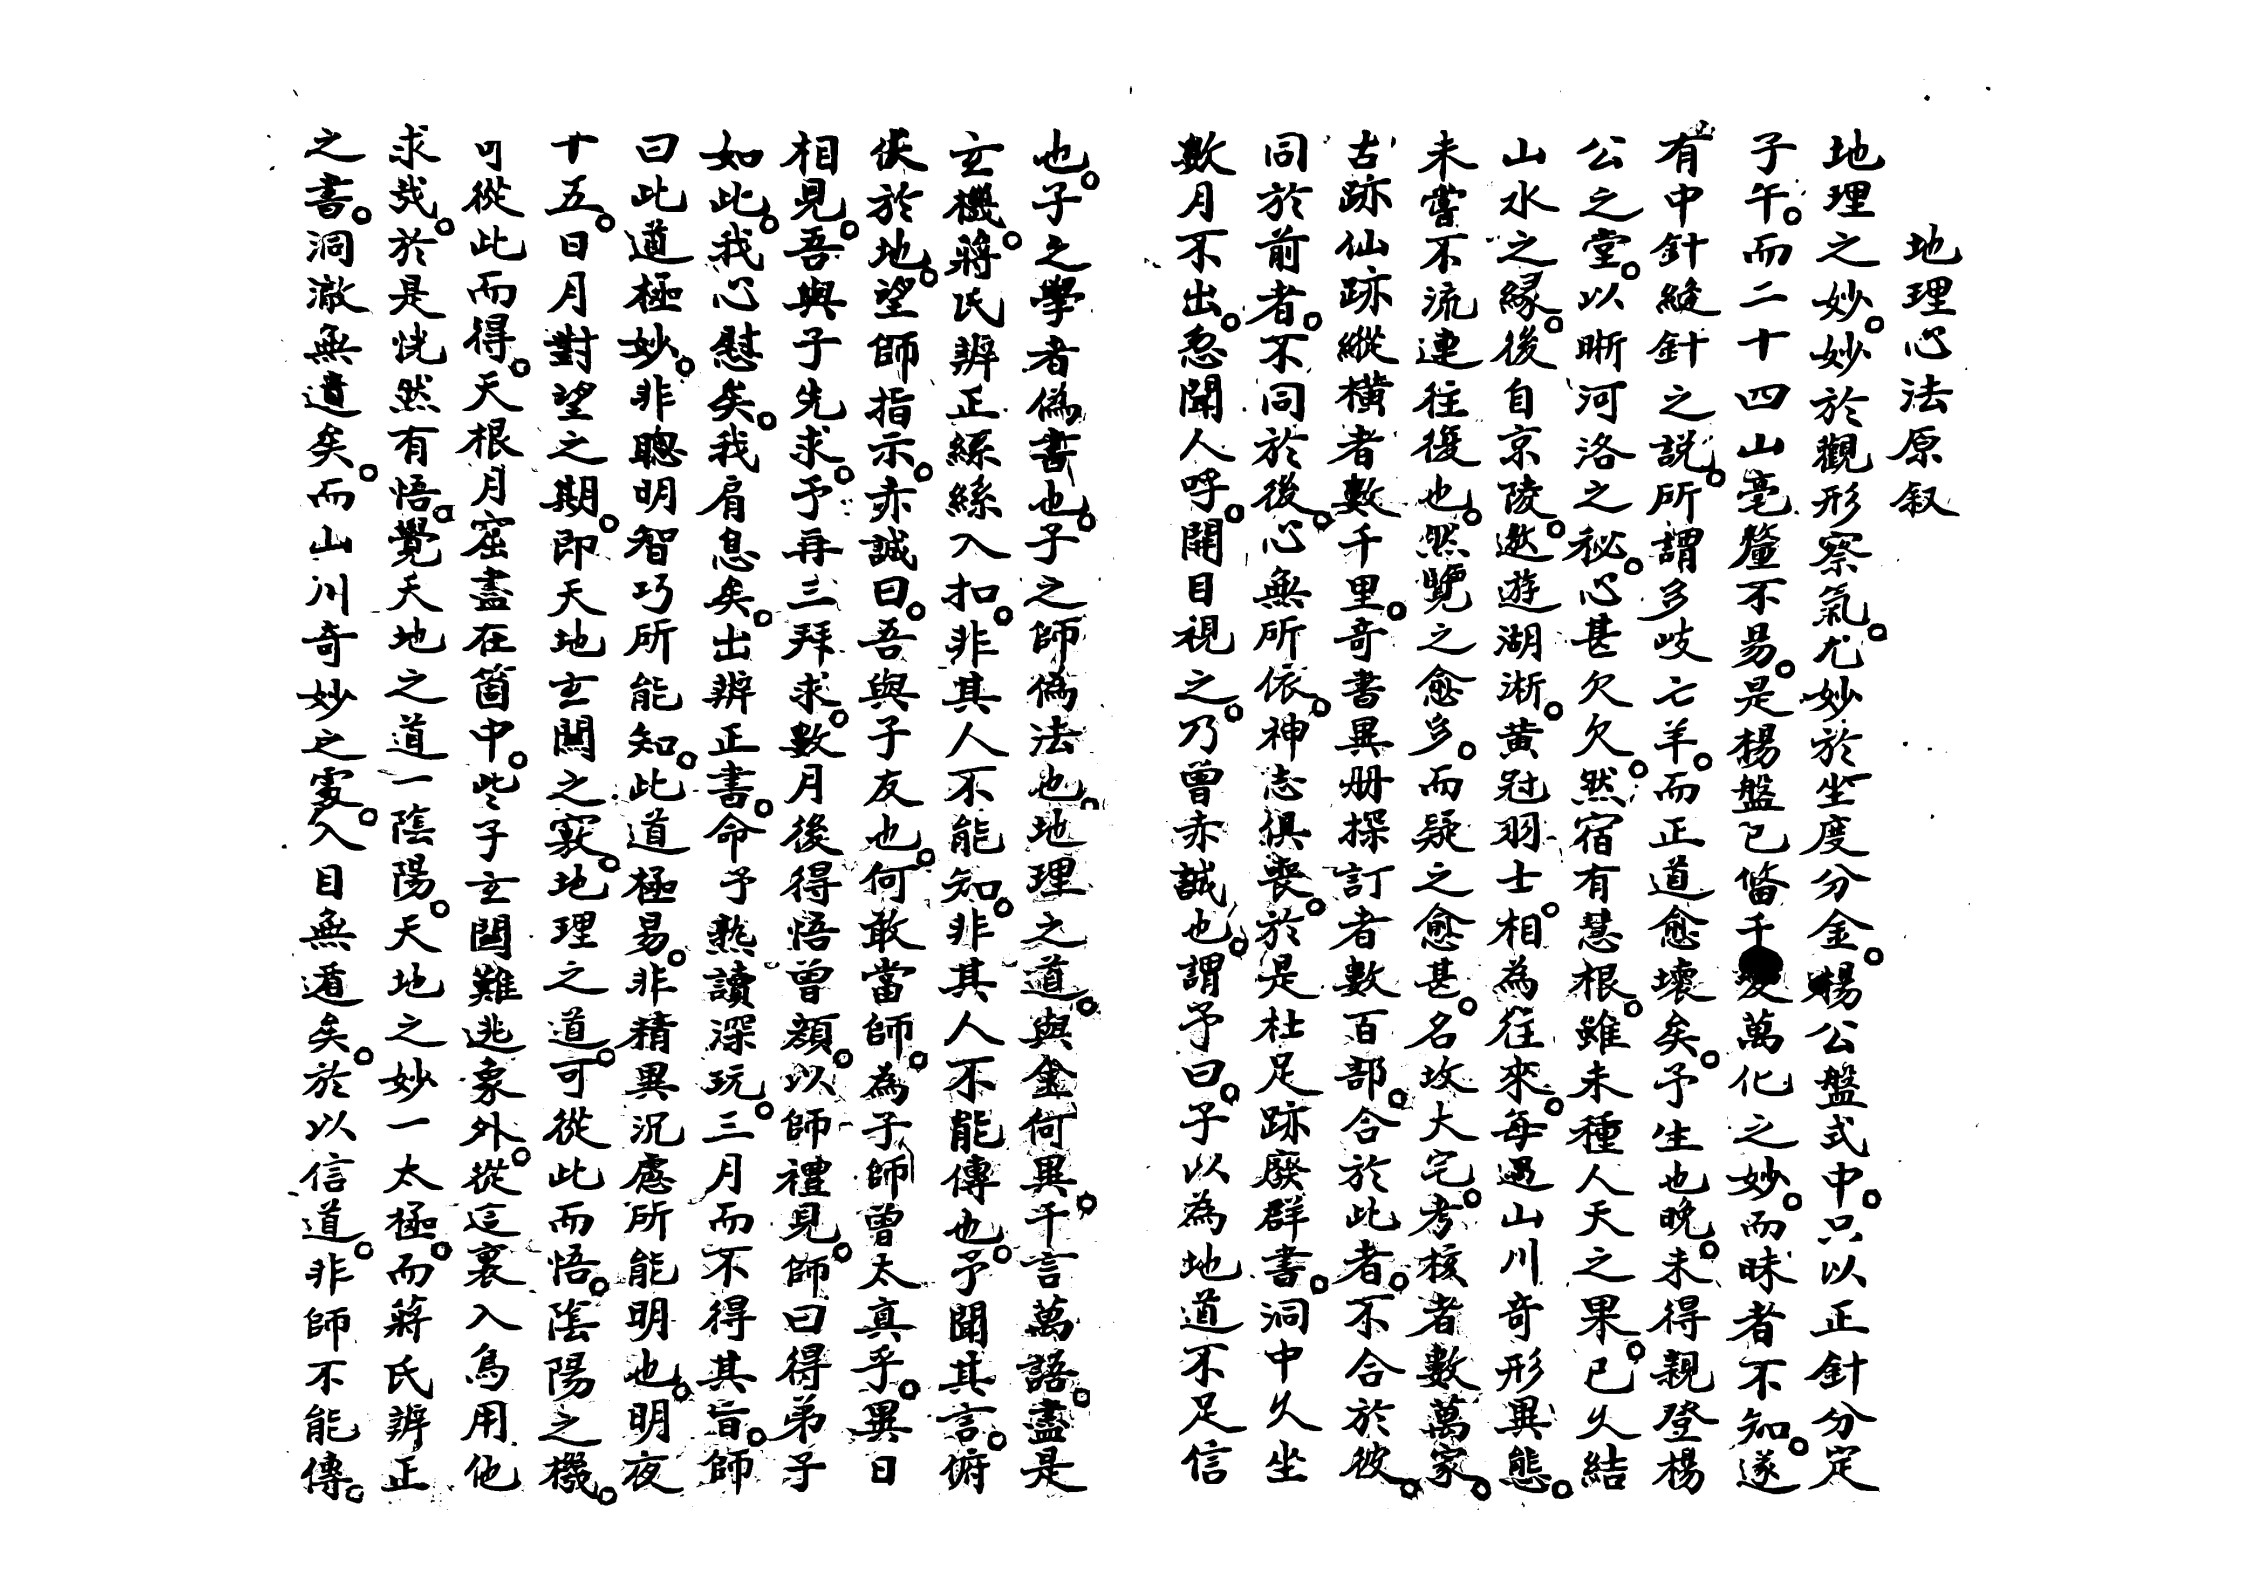 地理心法原叙
地理之妙。妙於觀形察氣。尤妙於坐度分金。楊公盤式中。只以正針分定
子午。而二十四山毫釐不易。是楊盤已備千變萬化之妙。而昧者不知。遂
有中針縫針之説。所謂多岐亡羊。而正道愈壞矣。予生也晚。未得親登楊
公之堂。以晰河洛之秘。心甚欠欠。然宿有慧根。雖未種人天之果。已久結
山水之緣。後自京陵。遨遊湖淅。黄冠羽士。相為往來。每遇山川奇形異態。
未嘗不流連往復也。然覽之愈多。而疑之愈甚。名坟大宅。考核者數萬家。
古跡仙跡縱橫者數千里。奇書異册探訂者數百部。合於此者。不合於彼。
同於前者。不同於後。心無所依。神志俱喪。於是杜足跡廢群書。洞中久坐
數月不出。忽聞人呼。開目視之。乃曾亦誠也。謂予曰。子以為地道不足信
也。子之學者偽書也。子之師偽法也。地理之道。與金何異。千言萬語。盡是
玄機。蔣氏辨正絲絲入扣。非其人不能知。非其人不能傳也。予聞其言。俯
伏於地。望師指示。亦誠曰。吾與子友也。何敢當師。為子師曾太真乎。異日
相見。吾與子先求。予再三拜求。數月後得悟曾顏。以師禮見。師曰得弟子
如此。我心慰矣。我肩息矣。出辨正書。命予熟讀深玩。三月而不得其旨。師
曰此道極妙。非聰明智巧所能知。此道極易。非精異況慮所能明也。明夜
十五。日月對望之期。即天地玄關之竅。地理之道。可從此而悟。陰陽之機。
可從此而得。天根月窟盡在箇中。些子玄関難逃象外。從這裏入烏用他
求㢤。於是恍然有悟。覺天地之道一陰陽。天地之妙一太極。而蔣氏辨正
之書。洞澈無遺矣。而山川奇妙之處。入目無遁矣。於以信道。非師不能傳。